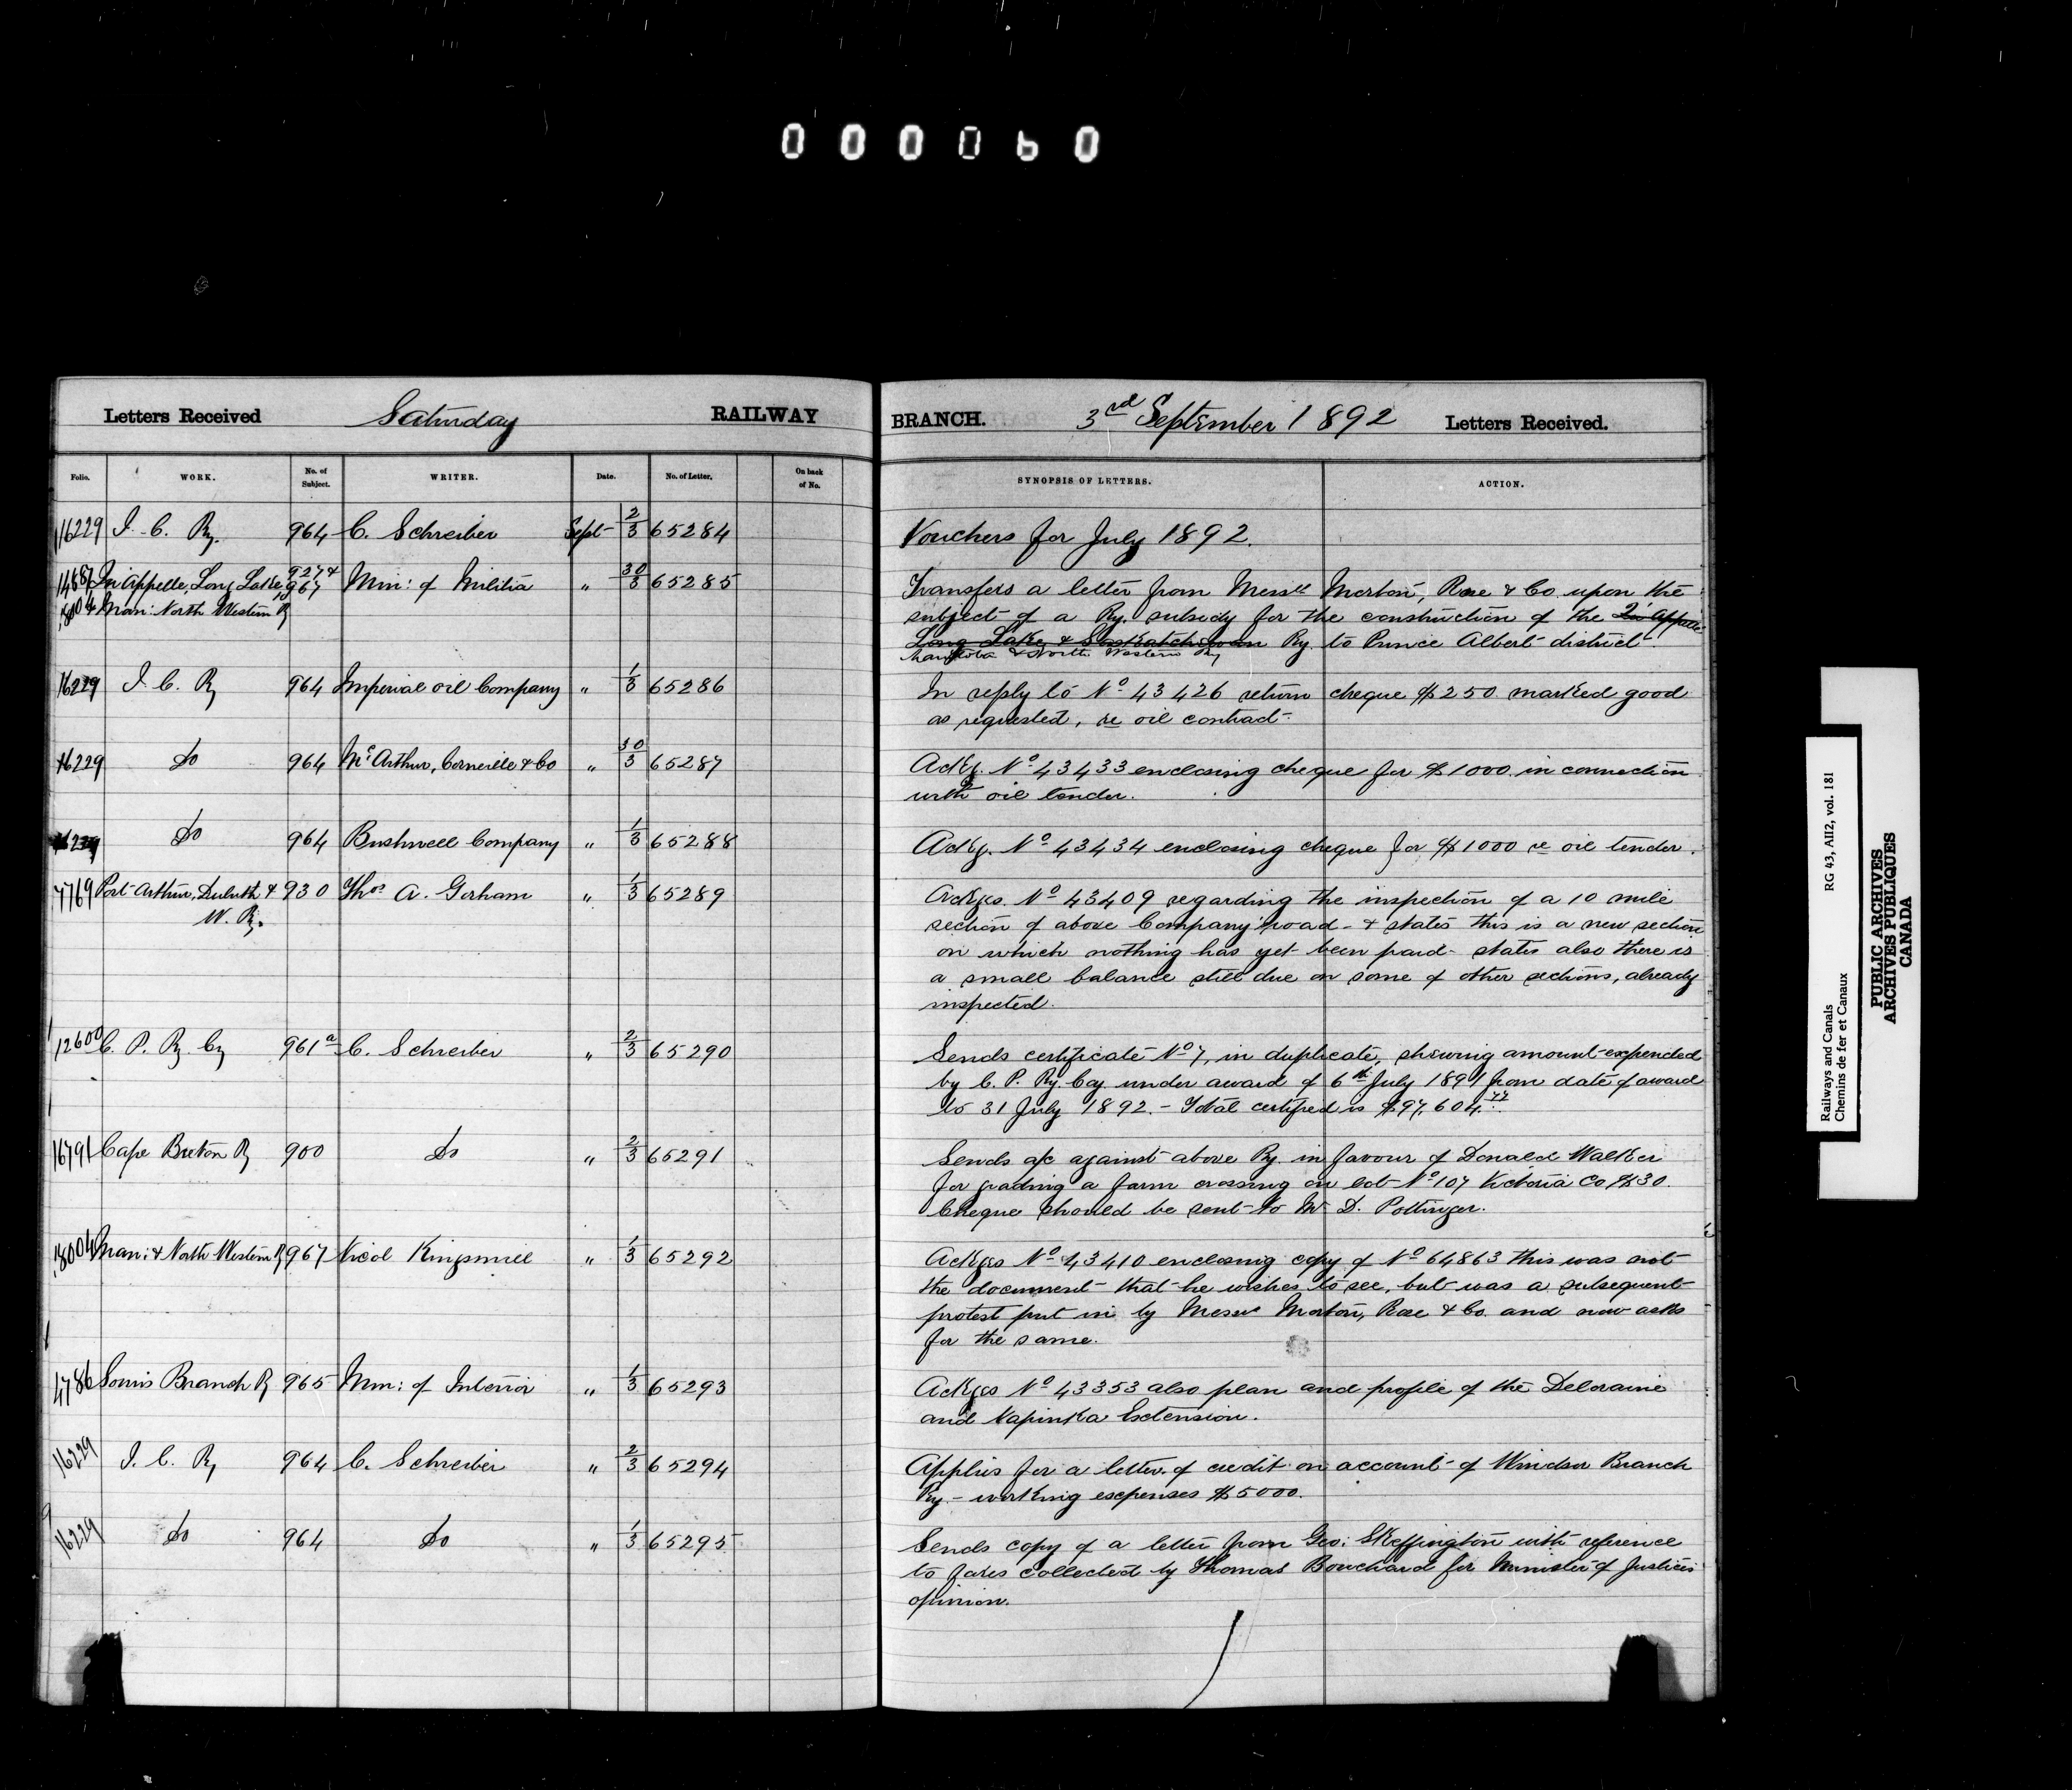 000060
Letters Received Saturday RAILWAY
BRANCH. 3rd September 1892 Letters Received.
Folio. WORK. No. of Subject. WRITER. Date. No. of Letter. On back of No.
SYNOPSIS OF LETTERS. ACTION.
16229 I. C. Ry. 964 C. Schreiber Sept 2/3 65284
Vouchers for July 1892.
Qu'Appelle, Long Lake, 927 & 967 Min: of Militia " 30/3 65285
18004 & Man: North Western Ry
Transfers a letter from Messrs Morton, Rose & Co. upon the
subject of a Ry. subsidy for the construction of the Qu'Appelle
Long Lake & Saskatchewan Ry. to Prince Albert district.
Manitoba & North Western Ry
16229 I. C. Ry 964 Imperial oil Company " 1/3 65286
In reply to No 43426 return cheque $250 marked good
as requested, re oil contract.
16229 Do 964 McArthur, Corneille & Co " 30/3 65287
Ackg. No 43433 enclosing cheque for $1000 in connection
with oil tender.
16229 Do 964 Bushnell Company " 1/3 65288
Ackg. No 43434 enclosing cheque for $1000 re oil tender.
7769 Port Arthur, Duluth & 930 Thos A. Gorham " 1/3 65289
W. Ry.
Ackges. No 43409 regarding the inspection of a 10 mile
section of above Company' road - & states this is a new section
on which nothing has yet been paid - states also there is
a small balance still due on some of other sections, already
inspected.
12600 C. P. Ry. Cy 961a C. Schreiber " 2/3 65290
Sends certificate No 7, in duplicate, shewing amount expended
by C. P. Ry. Coy. under award of 6th July 1891 from date of award
to 31 July 1892. - Total certified is $97,604.77
16791 Cape Breton Ry 900 Do " 2/3 65291
Sends a/c against above Ry. in favour of Donald Walker
for grading a farm crossing on lot No 107 Victoria Co, $30.
Cheque should be sent to Mr D. Pottinger.
18004 Man: & North Western Ry 967 Nicol Kingsmill " 1/3 65292
Ackges No 43410 enclosing copy of No 64863 this was not
the document that he wishes to see, but was a subsequent
protest put in by Messrs Morton, Rose & Co. and now asks
for the same.
4786 Souris Branch Ry 965 Min: of Interior " 1/3 65293
Ackges No 43353 also plan and profile of the Deloraine
and Napinka Extension.
16229 I. C. Ry 964 C. Schreiber " 2/3 65294
Applies for a letter of credit on account of Windsor Branch
Ry. - working expenses $5000.
16229 Do 964 Do " 1/3 65295
Sends copy of a letter from Geo: Skeffington with reference
to fares collected by Thomas Bouchard for Minister of Justices
opinion.
Railways and Canals RG 43, AII2, vol. 181
Chemins de fer et Canaux
PUBLIC ARCHIVES
ARCHIVES PUBLIQUES
CANADA